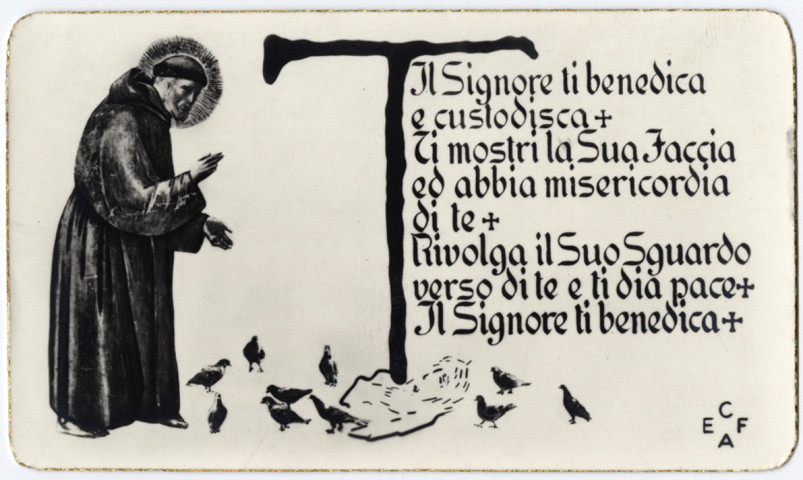 Il Signore ti benedica
e custodisca+
Ti mostri la Sua Faccia
ed abbia misericordia
di te +
Rivolga il Suo Sguardo
verso di te e ti dia pace+
Il Signore ti benedica+
C
E F
A